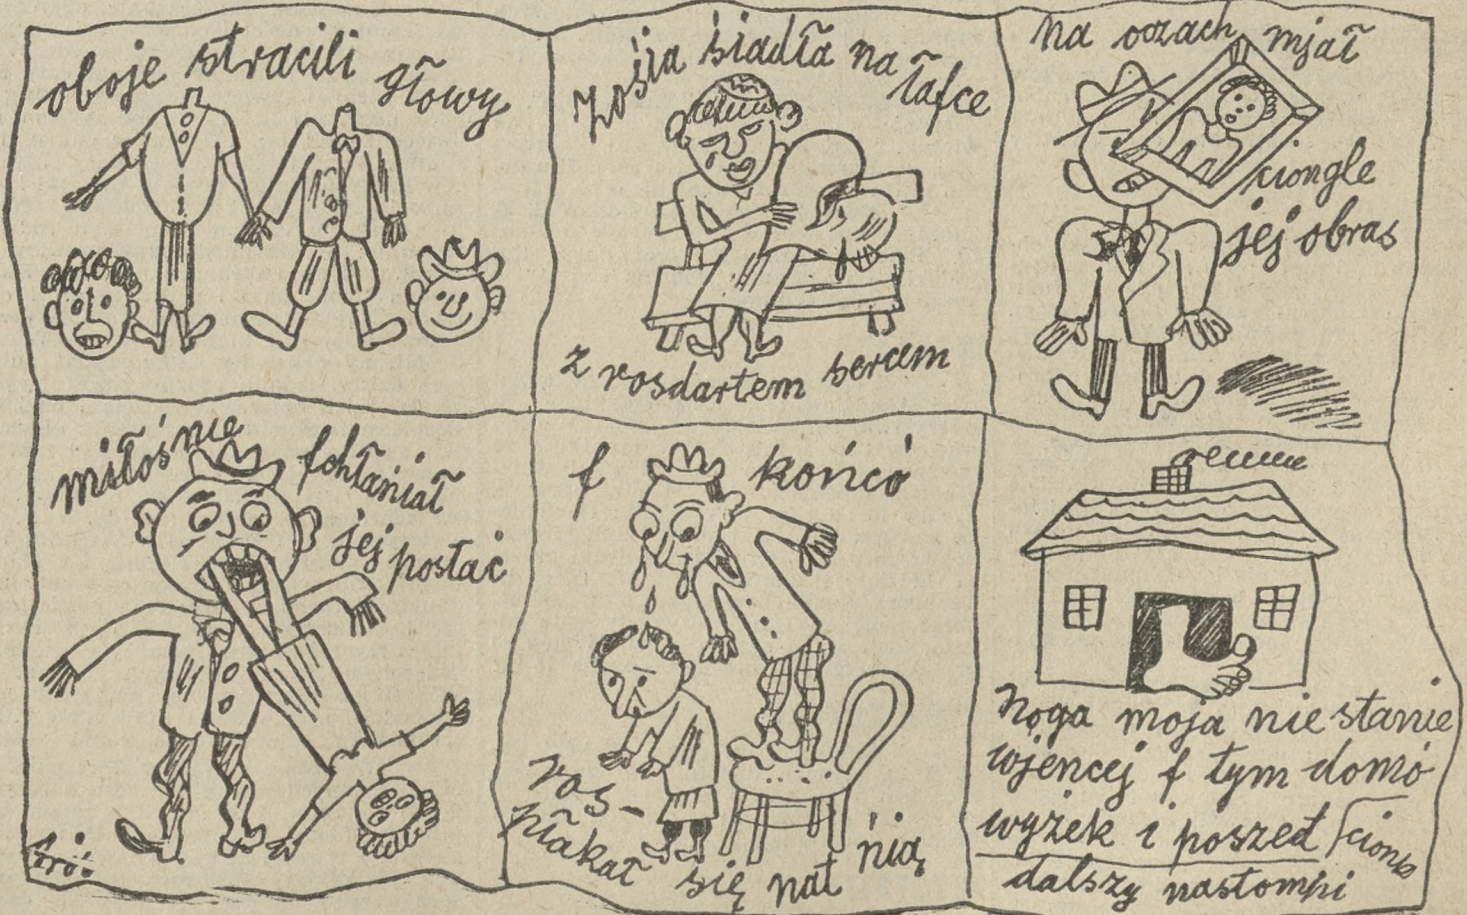 oboje stracili głowy
Zośia śiadła na łafce
z rosdartem sercem
Na oczach mjał
ciongle
jej obras
miłośnie fchłaniał
jej postać
f końcó
ros-
płakał się nat nią
Noga moja nie stanie
wjencej f tym domó
wyżek i poszeł
cionk
dalszy nastompi